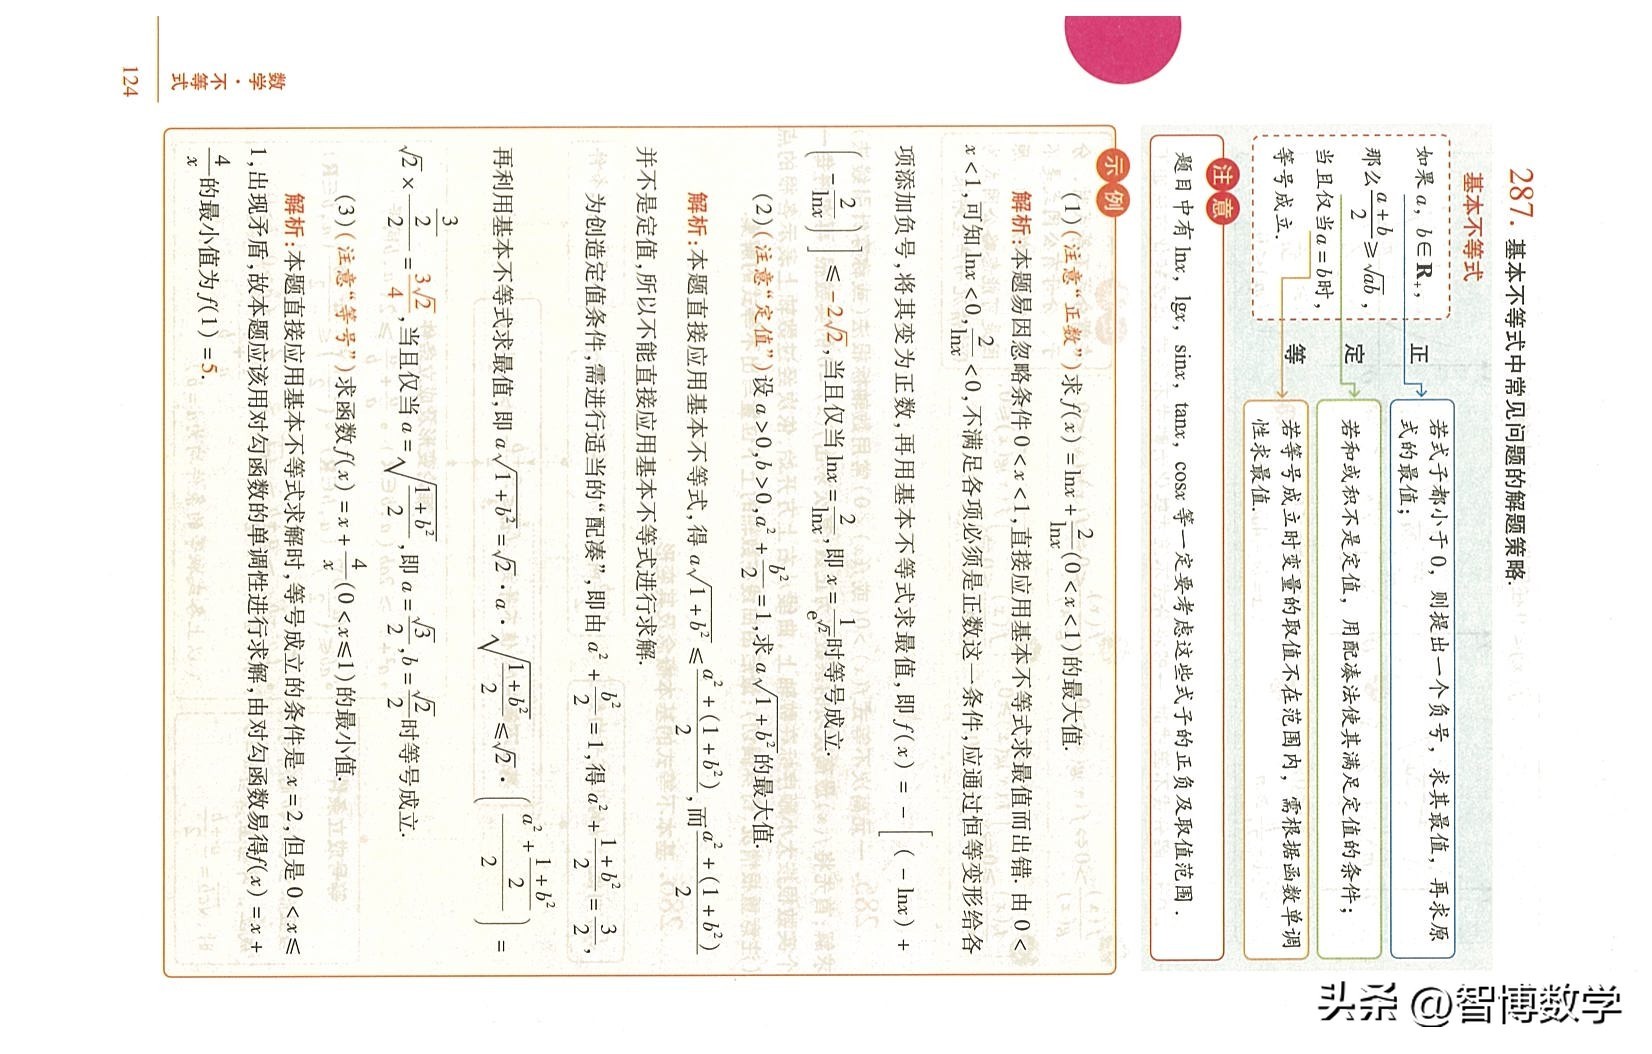 287. 基本不等式中常见问题的解题策略.
基本不等式
如果 a, b∈R₊,
那么 (a+b)/2 ≥ √(ab),
当且仅当 a=b 时,
等号成立.
正
若式子都小于0，则提出一个负号，求其最值，再求原
式的最值；
定
若和或积不是定值，用配凑法使其满足定值的条件；
等
若等号成立时变量的取值不在范围内，需根据函数单调
性求最值.
注意
题目中有 lnx, lgx, sinx, tanx, cosx 等一定要考虑这些式子的正负及取值范围.
示例
(1)(注意“正数”)求 f(x)=lnx+2/lnx(0<x<1)的最大值.
解析:本题易因忽略条件0<x<1,直接应用基本不等式求最值而出错.由0<
x<1,可知 lnx<0,2/lnx<0,不满足各项必须是正数这一条件,应通过恒等变形给各
项添加负号,将其变为正数,再用基本不等式求最值,即 f(x)=-[(-lnx)+
(-2/lnx)]≤-2√2,当且仅当 lnx=2/lnx,即 x=1/e^√2时等号成立.
(2)(注意“定值”)设 a>0,b>0,a²+b²/2=1,求 a√(1+b²)的最大值.
解析:本题直接应用基本不等式,得 a√(1+b²)≤(a²+(1+b²))/2,而(a²+(1+b²))/2
并不是定值,所以不能直接应用基本不等式进行求解.
为创造定值条件,需进行适当的“配凑”,即由 a²+b²/2=1,得 a²+(1+b²)/2=3/2,
再利用基本不等式求最值,即 a√(1+b²)=√2·a·√((1+b²)/2)≤√2·((a²+(1+b²)/2)/2)=
√2×(3/2)/2=3√2/4,当且仅当 a=√((1+b²)/2),即 a=√3/2,b=√2/2时等号成立.
(3)(注意“等号”)求函数 f(x)=x+4/x(0<x≤1)的最小值.
解析:本题直接应用基本不等式求解时,等号成立的条件是 x=2,但是0<x≤
1,出现矛盾,故本题应该用对勾函数的单调性进行求解,由对勾函数易得f(x)=x+
4/x的最小值为 f(1)=5.
数学·不等式
124
头条 @智博数学